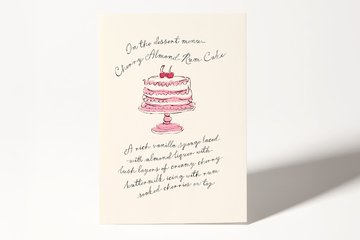 On the dessert menu
Cherry Almond Rum Cake
A rich vanilla sponge laced
with almond liquor with
lush layers of creamy cherry
buttermilk icing with rum
soaked cherries on top